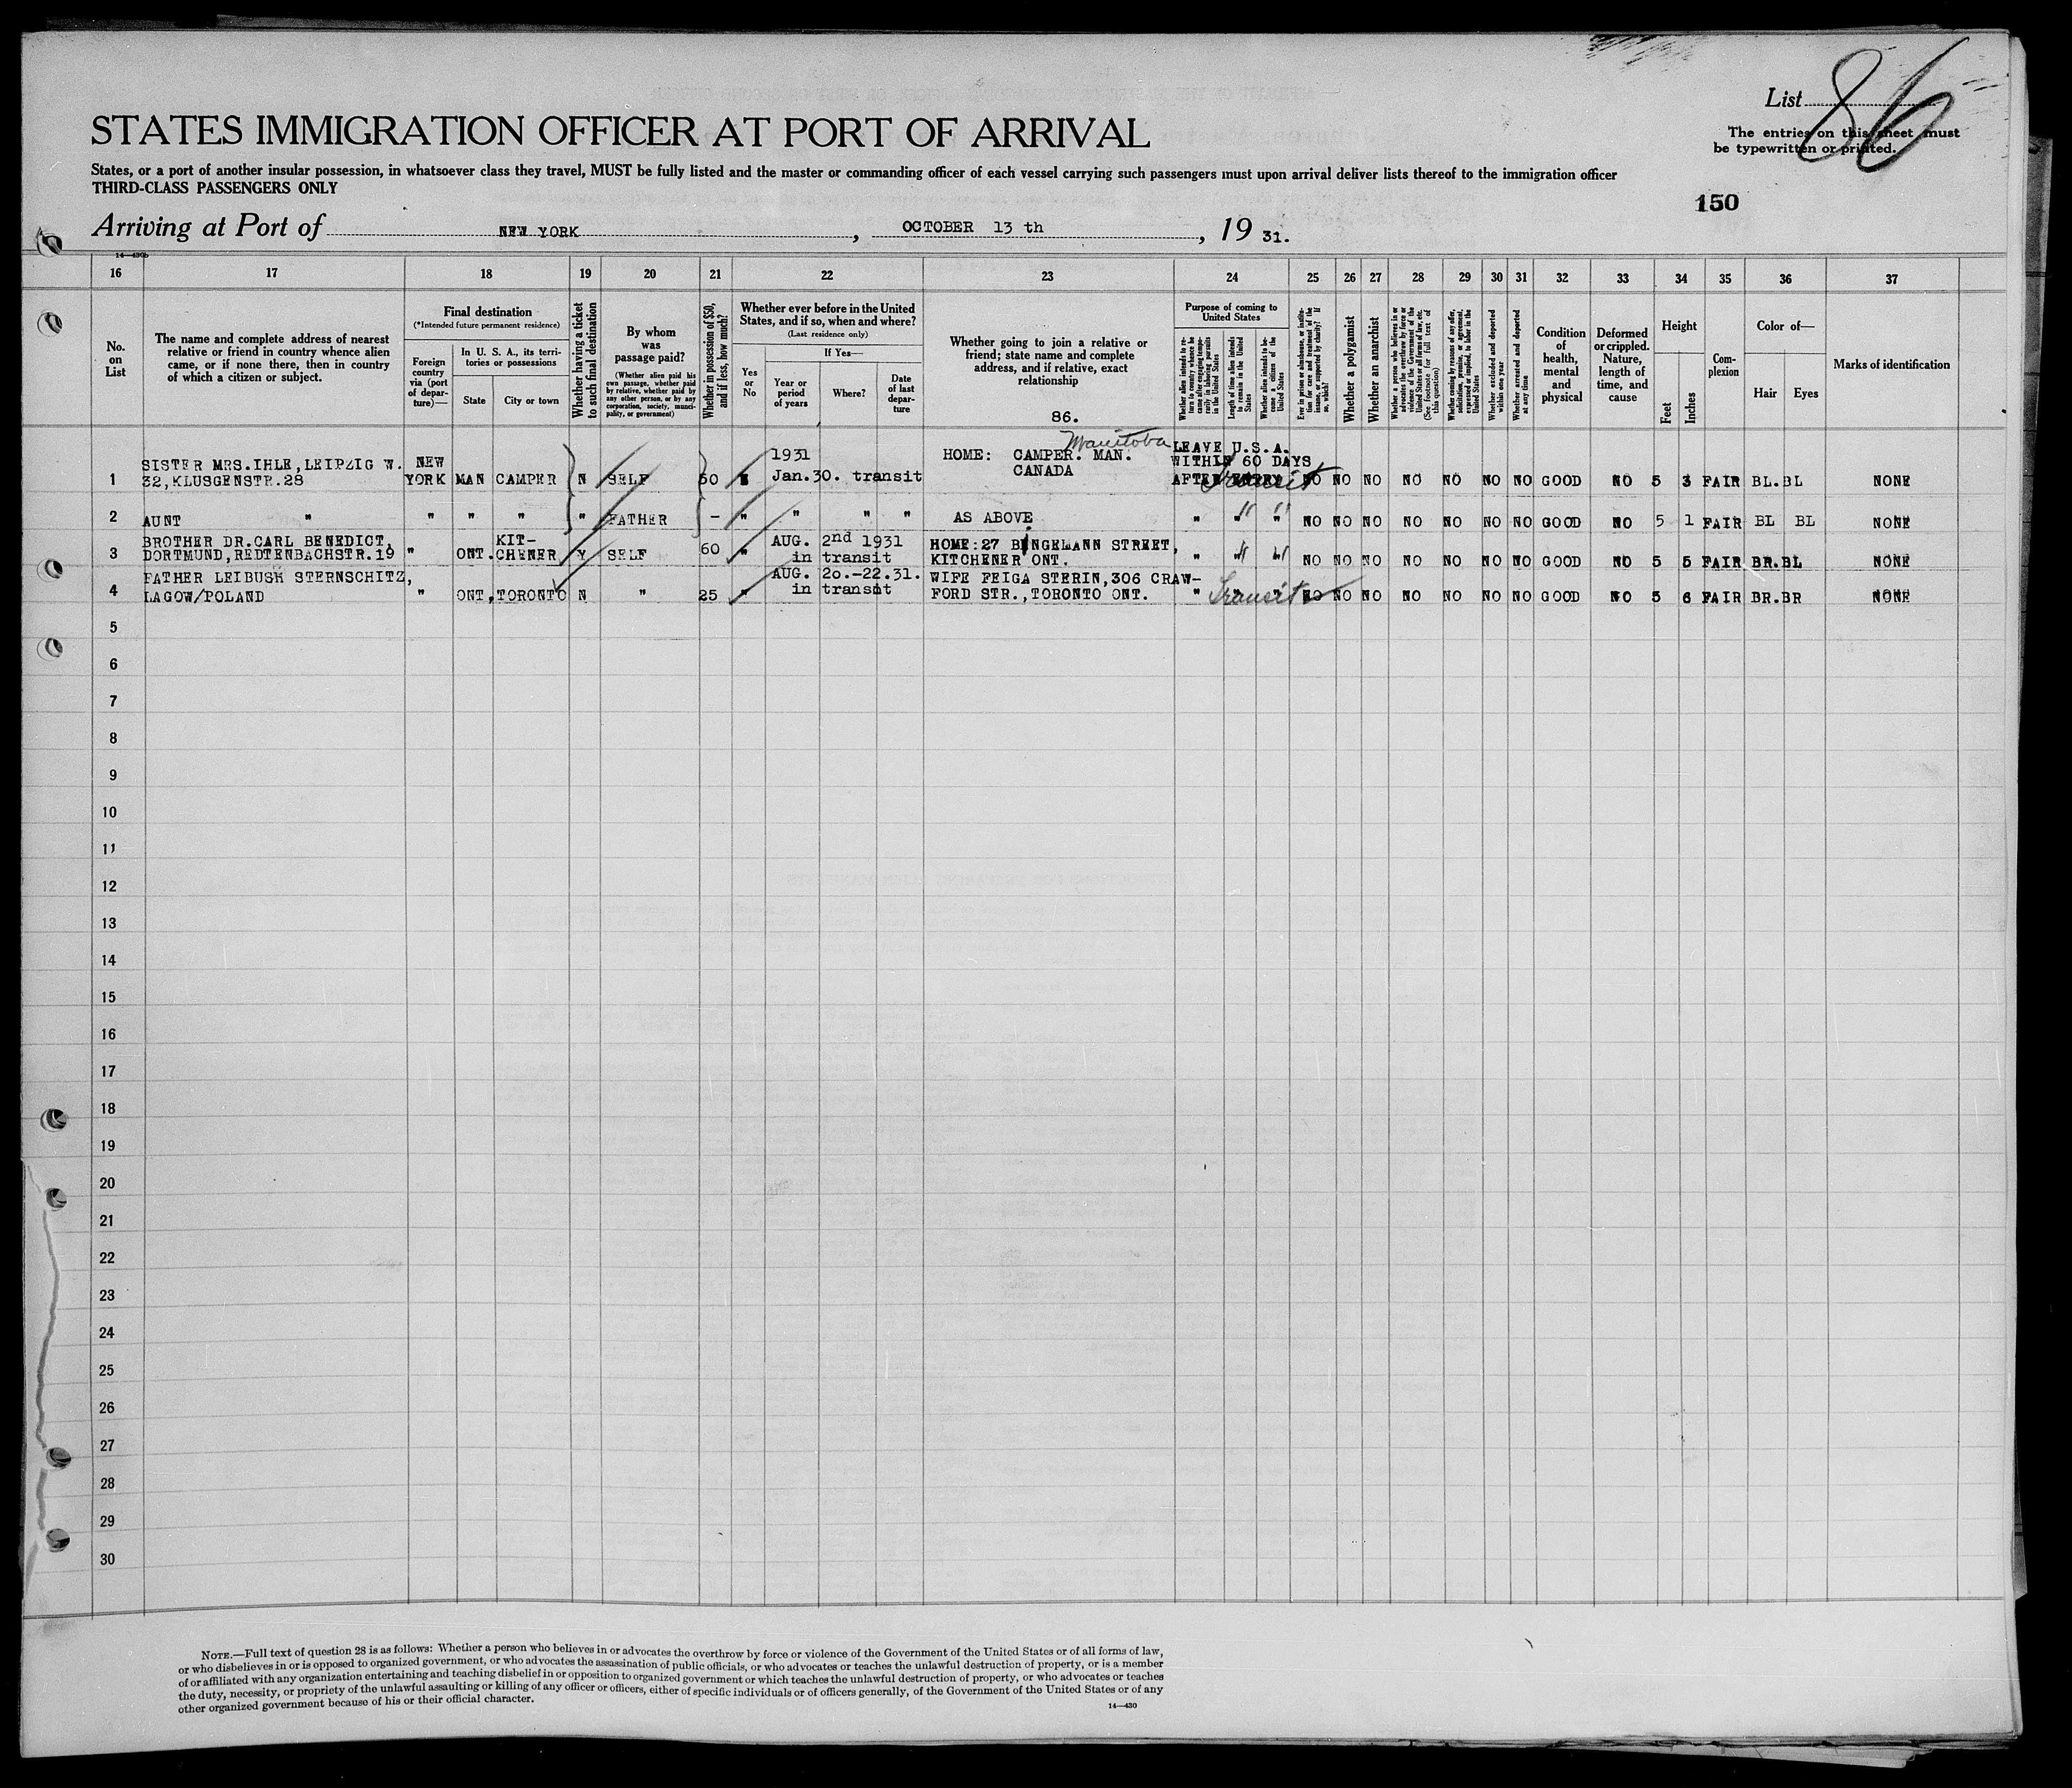 List 86
STATES IMMIGRATION OFFICER AT PORT OF ARRIVAL
The entries on this sheet must
be typewritten or printed.
States, or a port of another insular possession, in whatsoever class they travel, MUST be fully listed and the master or commanding officer of each vessel carrying such passengers must upon arrival deliver lists thereof to the immigration officer
THIRD-CLASS PASSENGERS ONLY
150
Arriving at Port of NEW YORK, OCTOBER 13 th, 19 31.
14—430b
16 17 18 19 20 21 22 23 24 25 26 27 28 29 30 31 32 33 34 35 36 37
No. on List
The name and complete address of nearest
relative or friend in country whence alien
came, or if none there, then in country
of which a citizen or subject.
Final destination
(*Intended future permanent residence)
Foreign country via (port of departure)—
In U. S. A., its territories or possessions
State
City or town
Whether having a ticket to such final destination
By whom was passage paid?
(Whether alien paid his own passage, whether paid by relative, whether paid by any other person, or by any corporation, society, municipality, or government)
Whether in possession of $50, and if less, how much?
Whether ever before in the United
States, and if so, when and where?
(Last residence only)
Yes or No
If Yes—
Year or period of years
Where?
Date of last departure
Whether going to join a relative or
friend; state name and complete
address, and if relative, exact
relationship
86.
Purpose of coming to United States
Whether alien intends to return to country whence he came after engaging temporarily in laboring pursuits in the United States
Length of time alien intends to remain in the United States
Whether alien intends to become a citizen of the United States
Ever in prison or almshouse, or institution for care and treatment of the insane, or supported by charity? If so, which?
Whether a polygamist
Whether an anarchist
Whether a person who believes in or advocates the overthrow by force or violence of the Government of the United States or all forms of law, etc. (See footnote for full text of this question)
Whether coming by reasons of any offer, solicitation, promise, or agreement, expressed or implied, to labor in the United States
Whether excluded and deported within one year
Whether arrested and deported at any time
Condition of health, mental and physical
Deformed or crippled. Nature, length of time, and cause
Height
Feet
Inches
Complexion
Color of—
Hair Eyes
Marks of identification
1 SISTER MRS.IHLE,LEIPZIG W. 32,KLUSGENSTR.28 NEW YORK MAN CAMPER N SELF 50 1931 Jan.30. transit HOME: CAMPER. MAN. Manitoba CANADA LEAVE U.S.A. WITHIN 60 DAYS AFTER ENTRY Transit NO NO NO NO NO NO NO GOOD NO 5 3 FAIR BL. BL NONE
2 AUNT " " " " " FATHER - " " " " AS ABOVE " " " NO NO NO NO NO NO NO GOOD NO 5 1 FAIR BL BL NONE
3 BROTHER DR.CARL BENEDICT, DORTMUND,REDTENBACHSTR.19 " ONT. KIT-CHENER Y SELF 60 " AUG. 2nd 1931 in transit HOME:27 BINGELMANN STREET, KITCHENER ONT. " " " NO NO NO NO NO NO NO GOOD NO 5 5 FAIR BR. BL NONE
4 FATHER LEIBUSH STERNSCHITZ, LAGOW/POLAND " ONT. TORONTO N " 25 " AUG. 20.-22.31. in transit WIFE FEIGA STERIN,306 CRAW-FORD STR.,TORONTO ONT. " Transit NO NO NO NO NO NO NO GOOD NO 5 6 FAIR BR. BR NONE
5
6
7
8
9
10
11
12
13
14
15
16
17
18
19
20
21
22
23
24
25
26
27
28
29
30
NOTE.—Full text of question 28 is as follows: Whether a person who believes in or advocates the overthrow by force or violence of the Government of the United States or of all forms of law,
or who disbelieves in or is opposed to organized government, or who advocates the assassination of public officials, or who advocates or teaches the unlawful destruction of property, or is a member
of or affiliated with any organization entertaining and teaching disbelief in or opposition to organized government or which teaches the unlawful destruction of property, or who advocates or teaches
the duty, necessity, or propriety of the unlawful assaulting or killing of any officer or officers, either of specific individuals or of officers generally, of the Government of the United States or of any
other organized government because of his or their official character.
14—430